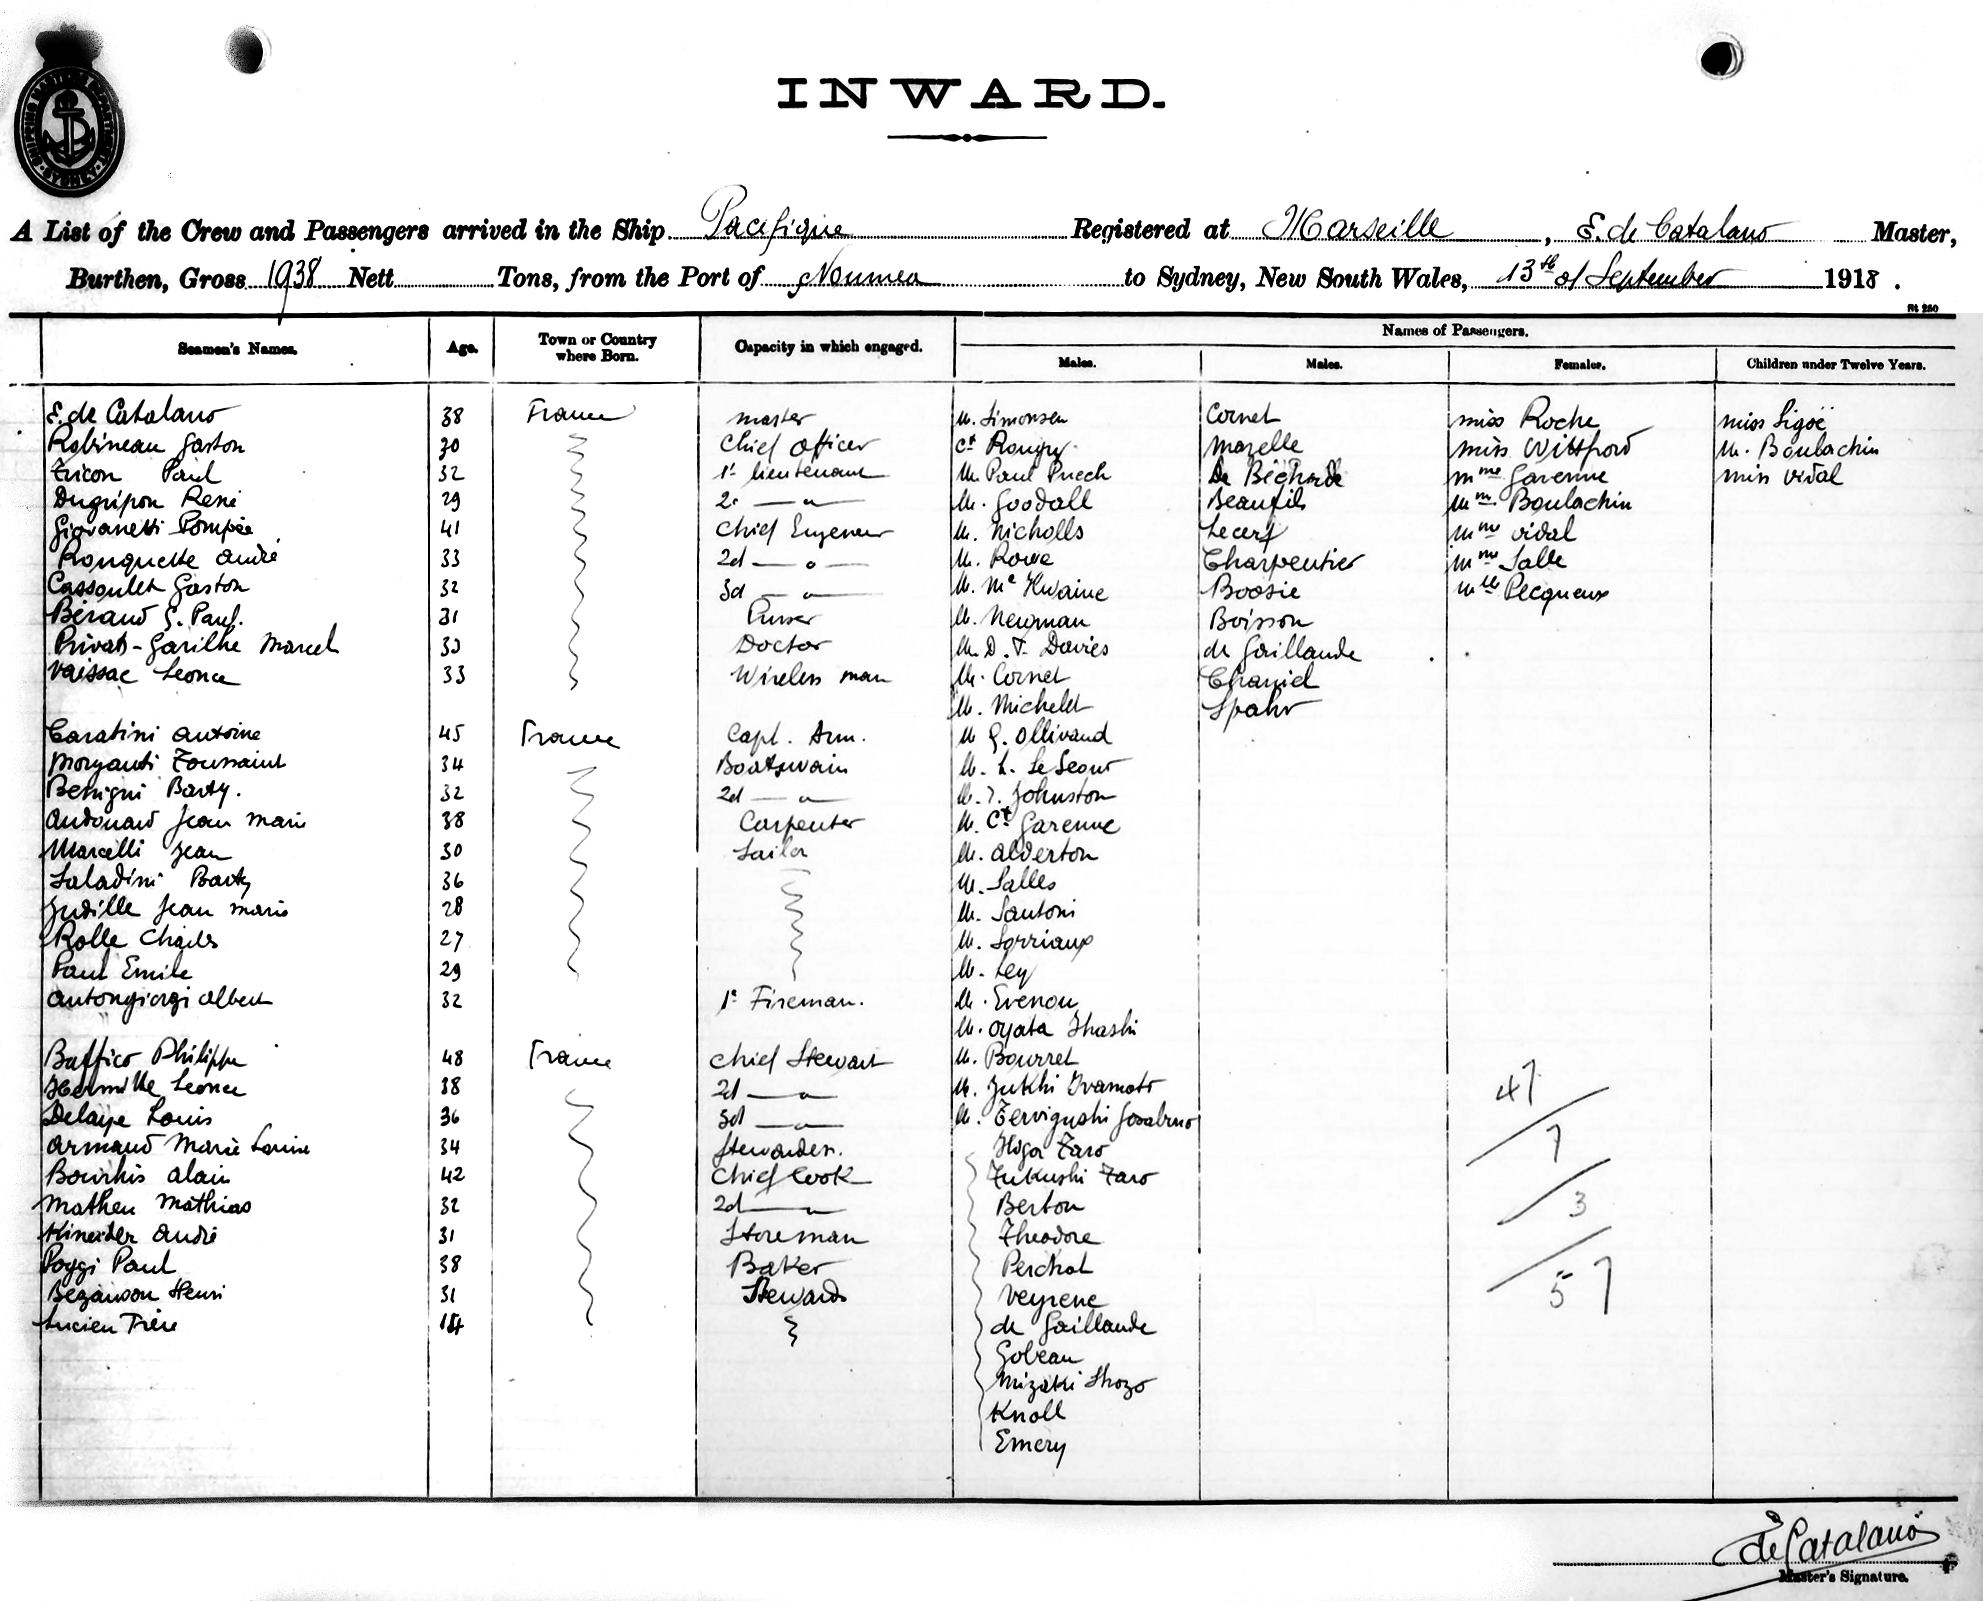 SHIPPING MASTERS DEPARTMENT SYDNEY
INWARD.
A List of the Crew and Passengers arrived in the Ship Pacifique Registered at Marseille, E. de Catalano Master,
Burthen, Gross 1938 Nett Tons, from the Port of Noumea to Sydney, New South Wales, 13th of September 1918.
St 250
Names of Passengers.
Seamen's Names. Age. Town or Country where Born. Capacity in which engaged. Males. Males. Females. Children under Twelve Years.
E. de Catalano 38 France master M. Simonsen Cornet miss Roche miss Ligoë
Robineau Gaston 30 Chief Officer Ct Rougy Mazelle miss Wittford M. Boulachin
Tricon Paul 32 1r lieutenant M. Paul Puech De Béchade mme Garenne miss vidal
Dugripon René 29 2e — " — M. Goodall Beaufils Mme Boulachin
Giovanetti Pompée 41 Chief Engeneer M. Nicholls Lecerf Mme vidal
Rouquette andré 33 2d — " — M. Rowe Charpentier Mme Salle
Cassoulet Gaston 32 3d — " — M. Mc Kwaine Boosie Mlle Pecqueux
Béraud G. Paul. 31 Purser M. Newman Boisson
Privat-Garilhe Marcel 33 Doctor M. D. T. Davies de Gaillande
Vaissac Leonce 33 Wireless man M. Cornet Chaniel
M. Michelet Spahr
Caratini antoine 45 France Capt. Arm. M G. Ollivaud
Morganti Toussaint 34 Boatswain M. L. Le Leour
Benigni Barty. 32 2d — " — M. J. Johnston
Audouard Jean Marie 38 Carpenter M. Ct Garenne
Marcelli Jean 30 Sailor M. alderton
Saladini Barty 36 M. Salles
Judille Jean Marie 28 M. Santoni
Rolle Charles 27 M. Lorriaux
Paul Emile 29 M. Ley
Antongiorgi albert 32 1r Fireman. M. Evenou
M. oyata Ihashi
Baffico Philippe 48 France Chief Stewart M. Bourret
Hermitte Leonce 38 2d — " — M. Jukhi Ivamoto
Delaye Louis 36 3d — " — M. Tervigushi
Armand Marie Louise 34 Stewardess. Higa Taro
Bourhis alain 42 Chief Cook Fukushi Taro
Matheu Mathias 32 2d — " — Berton
andré 31 Storeman Theodore
Poggi Paul 38 Baker Perchot
Bezanson Henri 31 Stewards Veyrene
Lucien Frère 18 de Gaillande
Gobeau
Mizaki Shozo
Knoll
Emery
47
7
3
57
de Catalano
Master's Signature.